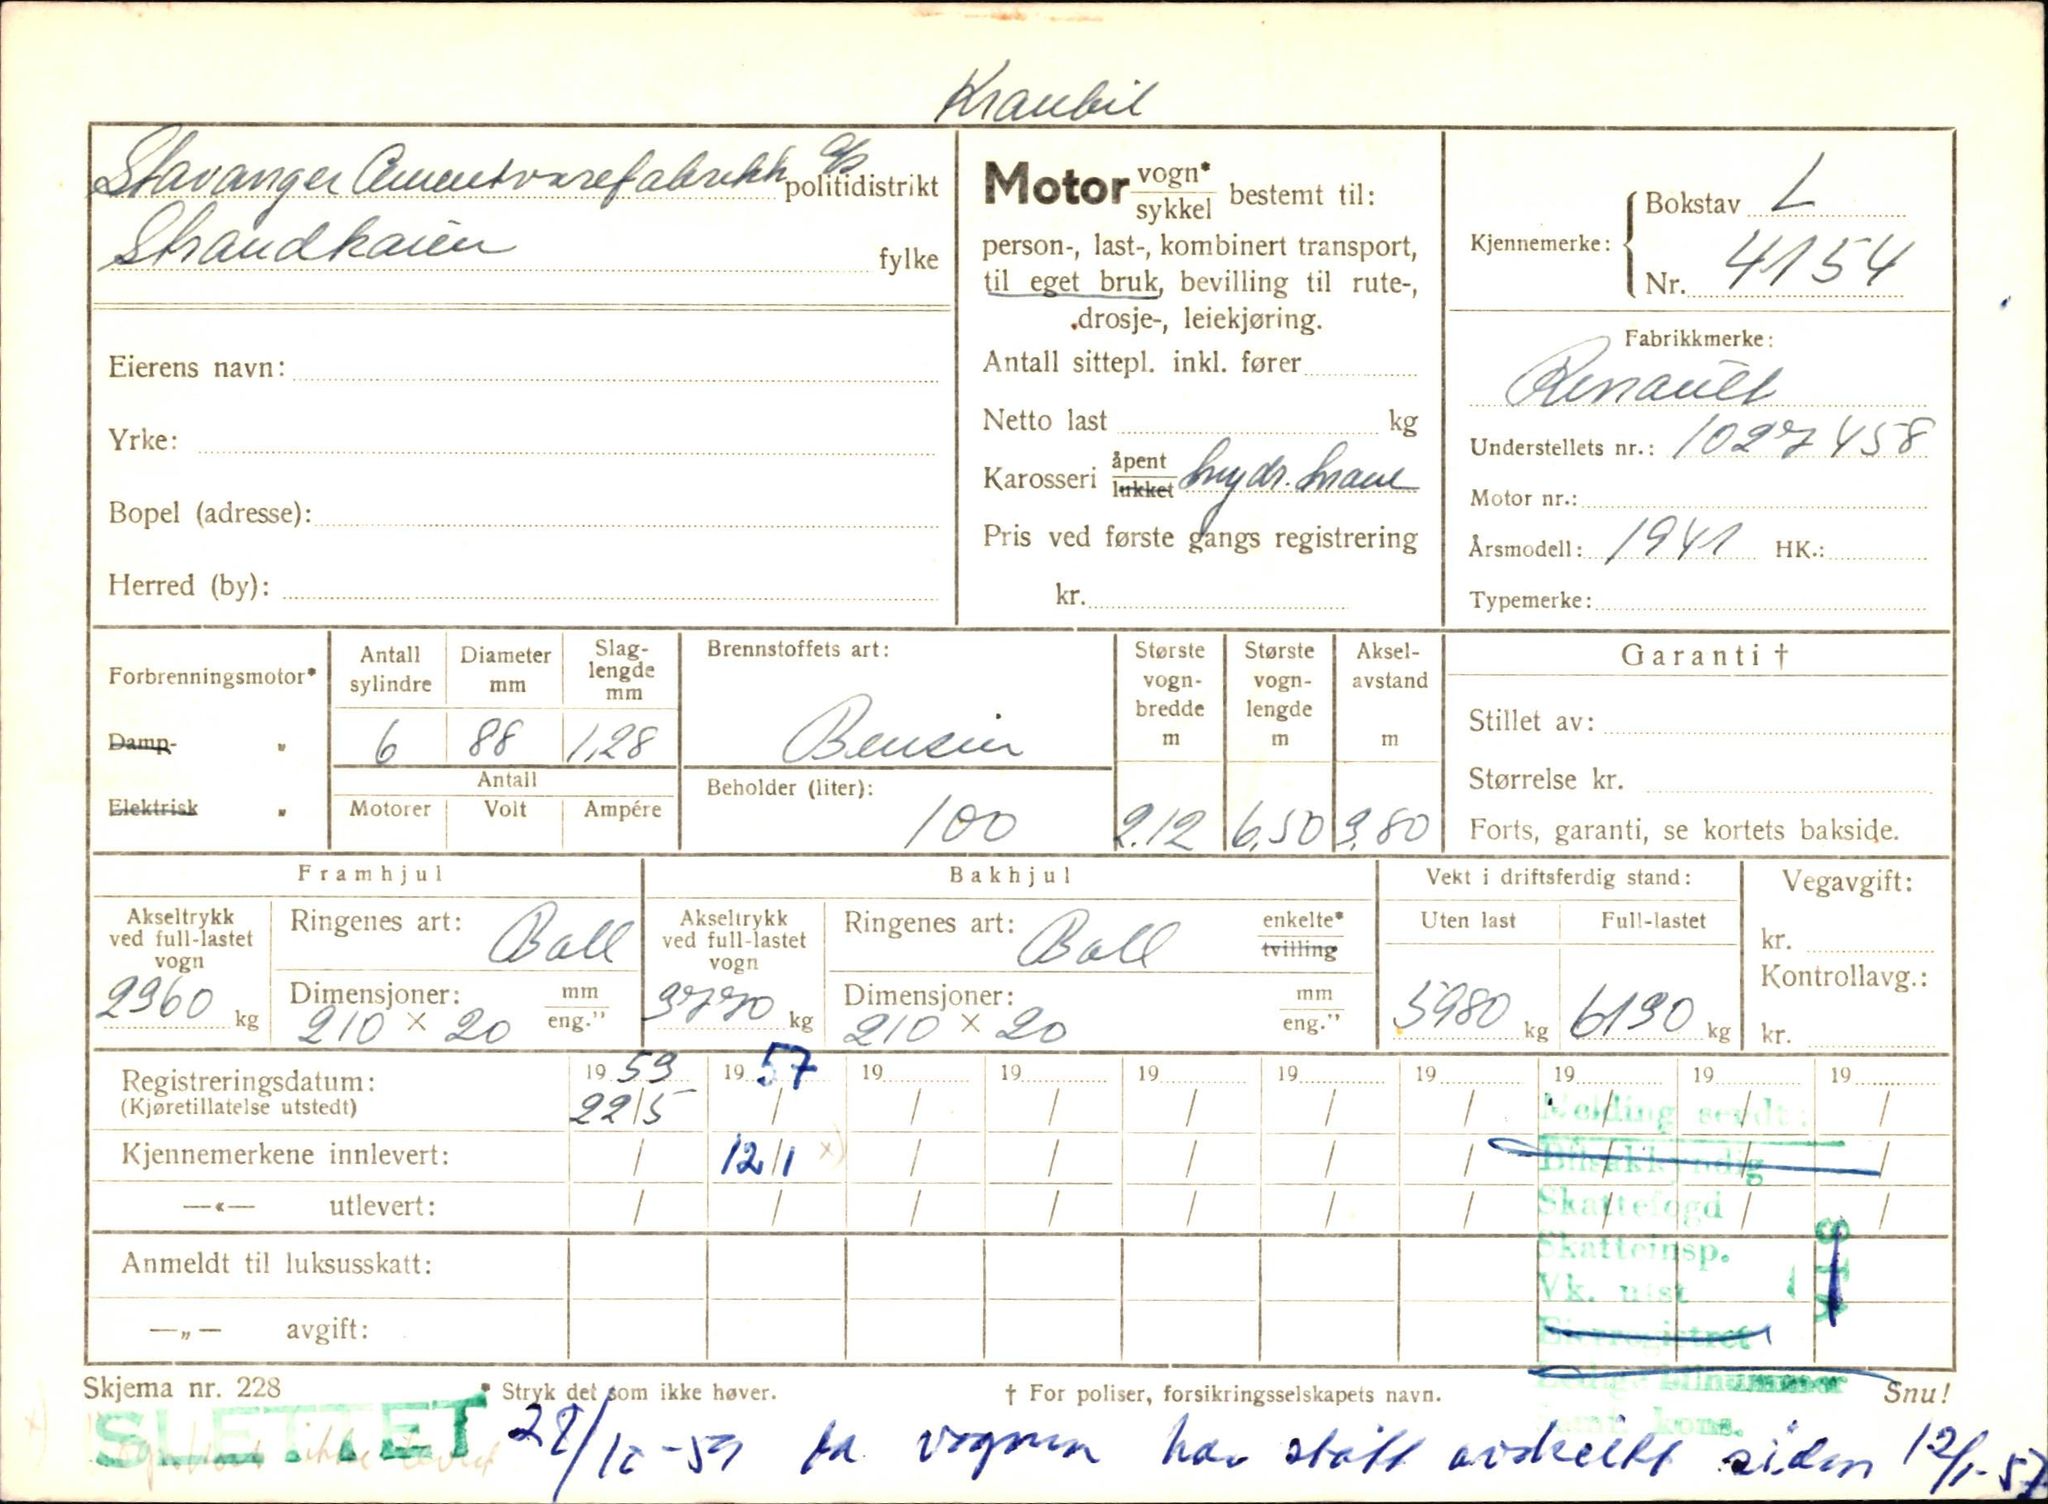 Kranbil
Stavanger Cementvarefabrikk a/s politidistrikt
Strandkaien fylke
Eierens navn:
Yrke:
Bopel (adresse):
Herred (by):
Motor vogn* / sykkel bestemt til:
person-, last-, kombinert transport,
til eget bruk, bevilling til rute-,
drosje-, leiekjøring.
Antall sittepl. inkl. fører
Netto last kg
Karosseri åpent / lukket hydr. krane
Pris ved første gangs registrering
kr.
Kjennemerke: Bokstav L
Nr. 4154
Fabrikkmerke:
Renault
Understellets nr.: 1027458
Motor nr.:
Årsmodell: 1941 HK.:
Typemerke:
Forbrenningsmotor*
Damp- „
Elektrisk „
Antall sylindre
6
Diameter mm
88
Slag-lengde mm
128
Antall
Motorer Volt Ampére
Brennstoffets art:
Bensin
Beholder (liter):
100
Største vogn-bredde m
2.12
Største vogn-lengde m
6.50
Aksel-avstand m
3.80
Garanti †
Stillet av:
Størrelse kr.
Forts, garanti, se kortets bakside.
Framhjul
Akseltrykk ved full-lastet vogn
2360 kg
Ringenes art: Ball
Dimensjoner: mm / eng."
210 x 20
Bakhjul
Akseltrykk ved full-lastet vogn
3770 kg
Ringenes art: Ball enkelte* / tvilling
Dimensjoner: mm / eng."
210 x 20
Vekt i driftsferdig stand:
Uten last Full-lastet
5980 kg 6130 kg
Vegavgift:
kr.
Kontrollavg.:
kr.
Registreringsdatum: 1953 1957 19 19 19 19 19 19 19 19
(Kjøretillatelse utstedt) 22/5 / / / / / / / / /
Kjennemerkene innlevert: / 12/1 x) / / / / / / / /
—«— utlevert: / / / / / / / / / /
Anmeldt til luksusskatt:
—„— avgift:
Melding sendt:
Bilsakkyndig
Skattefogd
Skatteinsp.
Vk. utst
Eierregistret
Ledige bilnummer
kons.
Skjema nr. 228 * Stryk det som ikke høver. † For poliser, forsikringsselskapets navn. Snu!
SLETTET da vognen har stått avskiltet siden 12/1-57